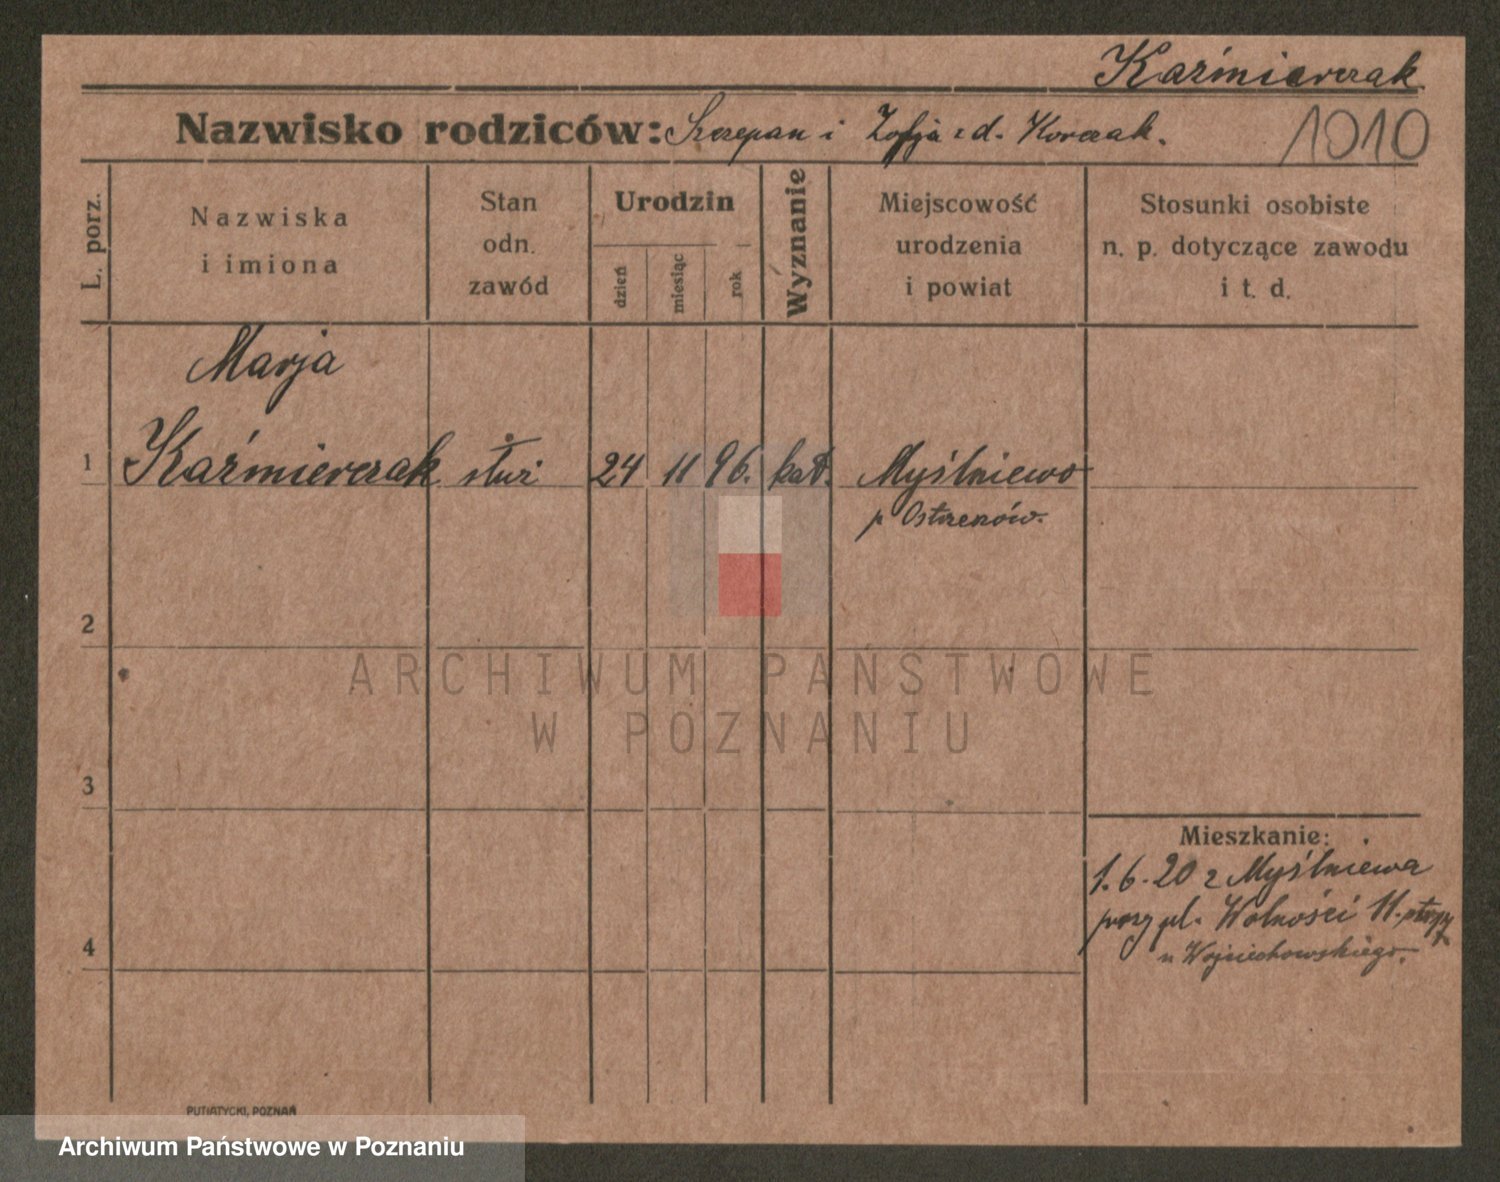 Kaźmierczak
Nazwisko rodziców: Szczepan i Zofja z d. Korczak.
1010
L. porz.
Nazwiska
i imiona
Stan
odn.
zawód
Urodzin
dzień
miesiąc
rok
Wyznanie
Miejscowość
urodzenia
i powiat
Stosunki osobiste
n. p. dotyczące zawodu
i t. d.
Marja
1 Kaźmierczak służ 24 11 96. kat. Myślniewo
p Ostrzeszów.
2
ARCHIWUM PAŃSTWOWE
W POZNANIU
3
Mieszkanie:
1.6.20 z Myślniewa
przy pl. Wolności 11.
4
u Wojciechowskiego.
PUTIATYCKI, POZNAŃ
Archiwum Państwowe w Poznaniu